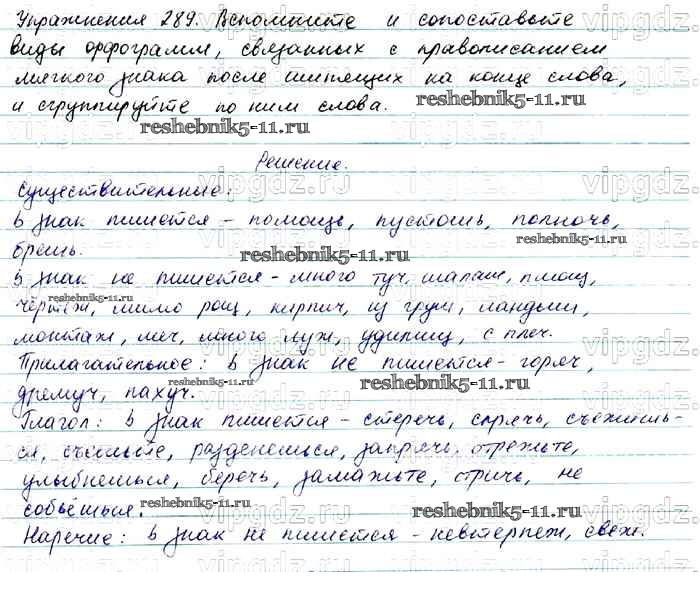 Упражнения 289. Вспомните и сопоставьте
виды орфограмм, связанных с правописанием
мягкого знака после шипящих на конце слова,
и сгруппируйте по ним слова.
reshebnik5-11.ru
reshebnik5-11.ru
Решение.
Существительные:
ь знак пишется – помощь, пустошь, полночь,
брешь.
reshebnik5-11.ru
ь знак не пишется – много туч, шалаш, плющ,
чертёж, мимо рощ, кирпич, из груш, ландыш,
reshebnik5-11.ru
монтаж, меч, много луж, удилищ, с плеч.
Прилагательное: ь знак не пишется – горяч,
дремуч, пахуч.
reshebnik5-11.ru
reshebnik5-11.ru
Глагол: ь знак пишется – стеречь, спрячь, съежишь-
ся, съешьте, разденешься, запрячь, отрежьте,
улыбнешься, беречь, замажьте, стричь, не
собьёшься.
reshebnik5-11.ru
reshebnik5-11.ru
Наречие: ь знак не пишется – невтерпеж, свеж.
vipgdz.ru